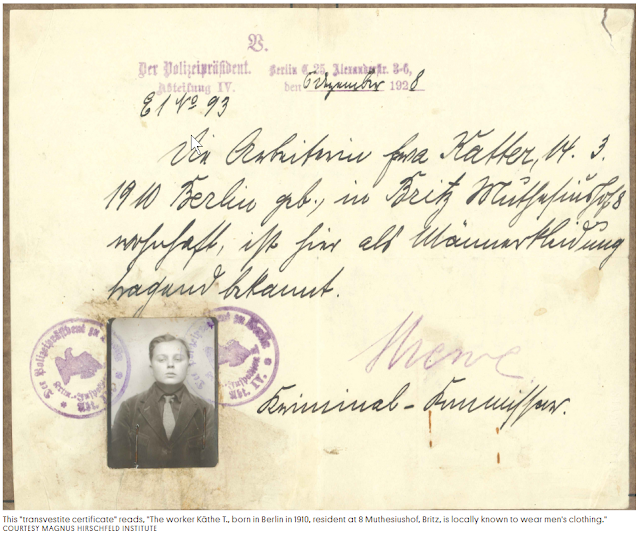 V.
Der Polizeipräsident. Berlin C 25, Alexanderstr. 3-6,
Abteilung IV. den 6 Dezember 1928
E 1 No 93
Die Arbeiterin Katter, 14. 3.
1910 Berlin geb., in Britz Muthesiushof 8
wohnhaft, ist hier als Männerkleidung
tragend bekannt.
Der Polizeipräsident zu Berlin
Abt. IV.
Kriminal-Kommissar.
This "transvestite certificate" reads, "The worker Käthe T., born in Berlin in 1910, resident at 8 Muthesiushof, Britz, is locally known to wear men's clothing."
COURTESY MAGNUS HIRSCHFELD INSTITUTE